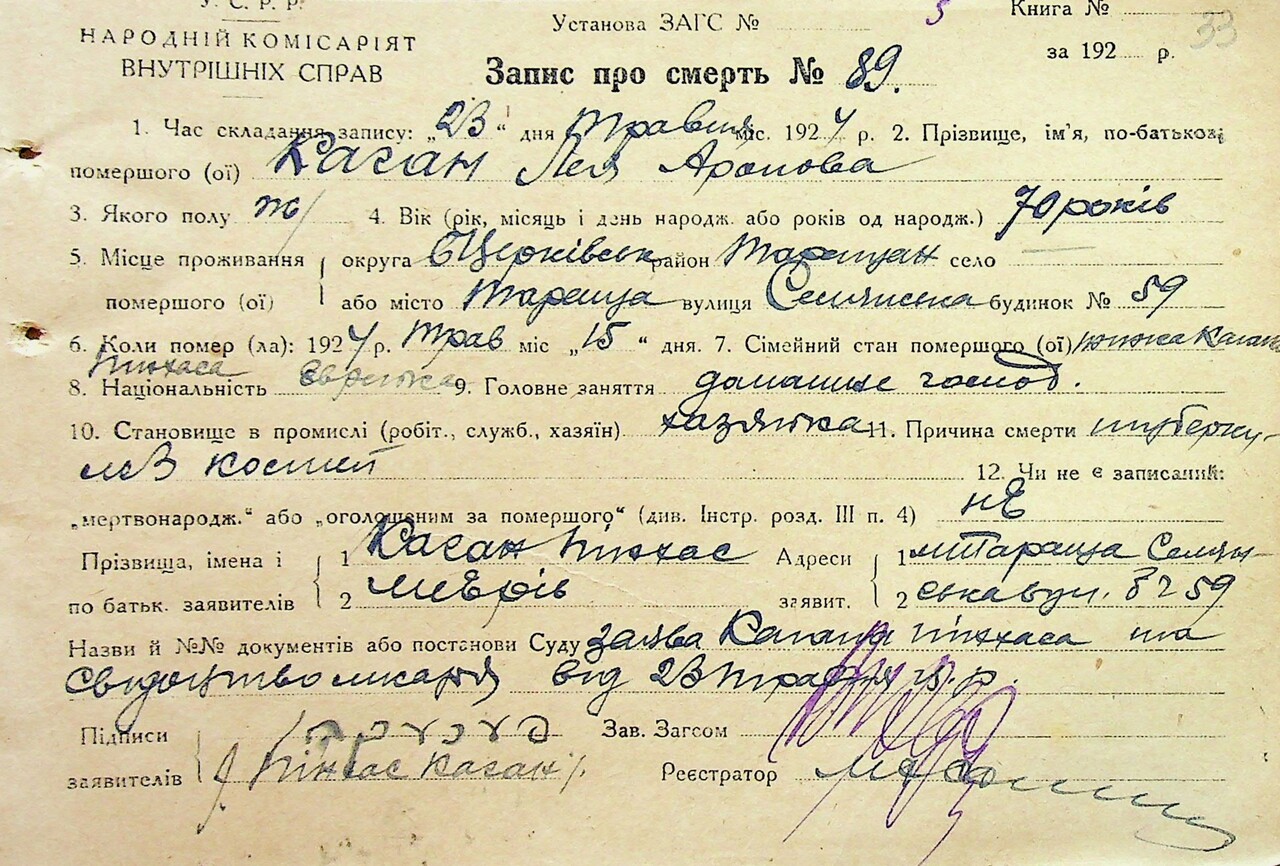 У.С.Р.Р.
НАРОДНІЙ КОМІСАРІЯТ
ВНУТРІШНІХ СПРАВ
Установа ЗАГС № 5
Книга № 33
за 192 р.
Запис про смерть № 89.
1. Час складання запису: „23“ дня Травня міс. 1924 р. 2. Прізвище, ім'я, по-батькові
помершого (ої) Каган Лея Аронова
3. Якого полу ж 4. Вік (рік, місяць і день народж. або років од народж.) 70 років
5. Місце проживання округа БЦерківськ район Таращан село
помершого (ої) або місто Тараща вулиця Селянська будинок № 59
6. Коли помер (ла): 1924 р. Трав міс „15“ дня. 7. Сімейний стан помершого (ої) жінка Кагана
Пінхаса
8. Національність Єврейка 9. Головне заняття домашнє господ.
10. Становище в промислі (робіт., служб., хазяїн) хазяйка 11. Причина смерти туберку-
льоз костей 12. Чи не є записаний:
„мертвонародж.“ або „оголошеним за помершого“ (див. Інстр. розд. III п. 4) нЕ
Прізвища, імена і 1 Каган Пінхас Адреси 1 м Тараща Селян-
по батьк. заявителів 2 заявит. 2 ська вул. 59
Назви й №№ документів або постанови Суду заява Кагана Пінхаса та
Свидоцтво лікаря від 23 травня р.
Підписи Зав. Загсом
заявителів Пінхас Каган Реєстратор